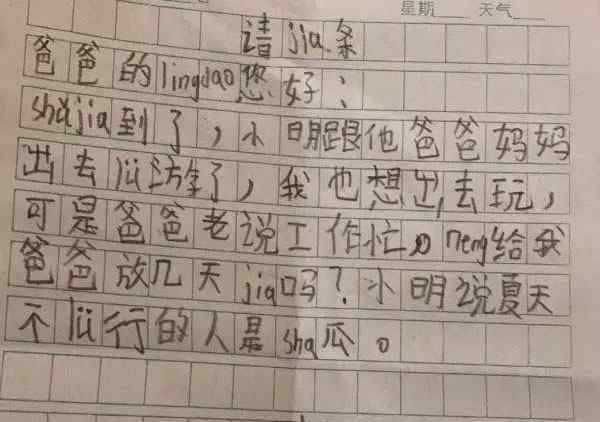 星期 天气
请jia条
爸爸的lingdao您好：
shǔjia到了，小明跟他爸爸妈妈
出去lǚ游了，我也想出去玩，
可是爸爸老说工作忙。neng给我
爸爸放几天jia吗？小明说夏天
不lǚ行的人是sha瓜。